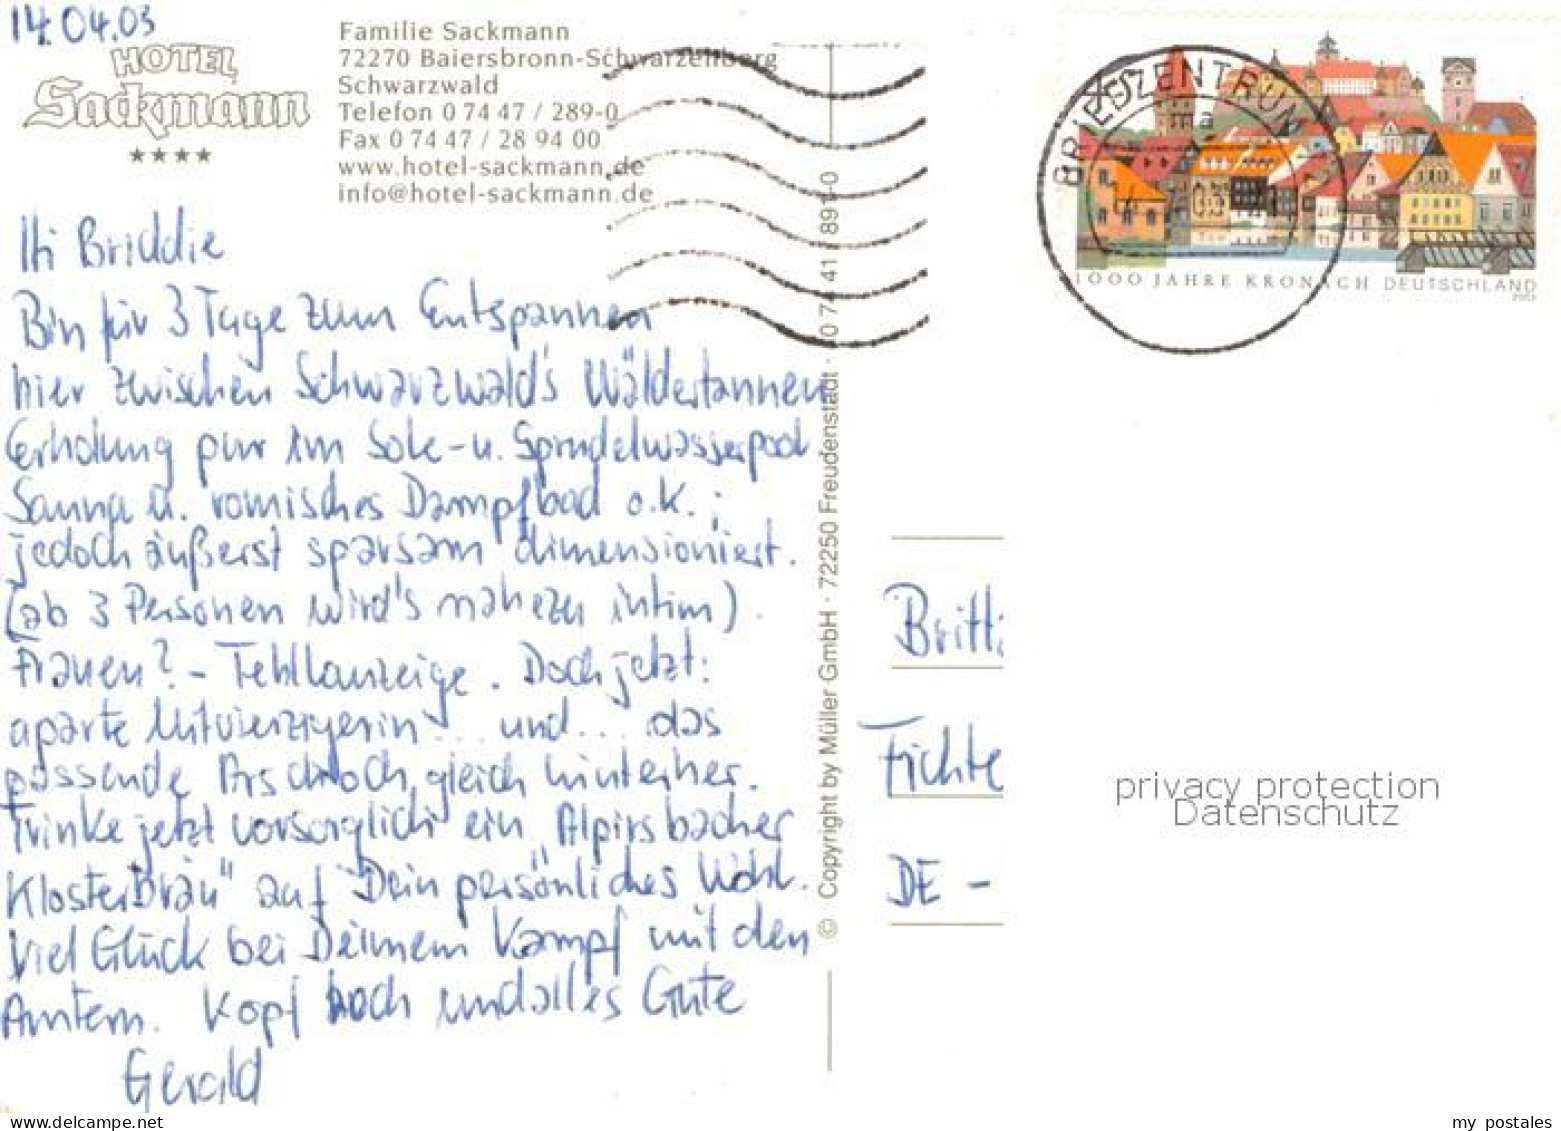 14.04.03
HOTEL
Sackmann
Familie Sackmann
72270 Baiersbronn-Schwarzenberg
Schwarzwald
Telefon 0 74 47 / 289-0
Fax 0 74 47 / 28 94 00
www.hotel-sackmann.de
info@hotel-sackmann.de
Hi Briddie
Bin für 3 Tage zum Entspannen
hier zwischen Schwarzwald's Wäldertannen
Erholung pur im Sole- u. Sprudelwasserpool
Sauna u. römisches Dampfbad o.k.;
jedoch äußerst sparsam dimensioniert.
(ab 3 Personen wird's nahezu intim).
Frauen? - Fehllanzeige. Doch jetzt:
aparte Mitvierzigerin... und... das
passende Arschloch gleich hinterher.
Trinke jetzt vorsorglich ein "Alpirsbacher
Klosterbräu" auf Dein persönliches Wohl.
Viel Glück bei Deinem Kampf mit den
Ämtern. Kopf hoch und alles Gute
Gerald
© Copyright by Müller GmbH · 72250 Freudenstadt · 0 74 41 / 89 1-0
BRIEFZENTRUM
1000 JAHRE KRONACH DEUTSCHLAND
2003
Britt
Fichte
DE -
privacy protection
Datenschutz
my postales